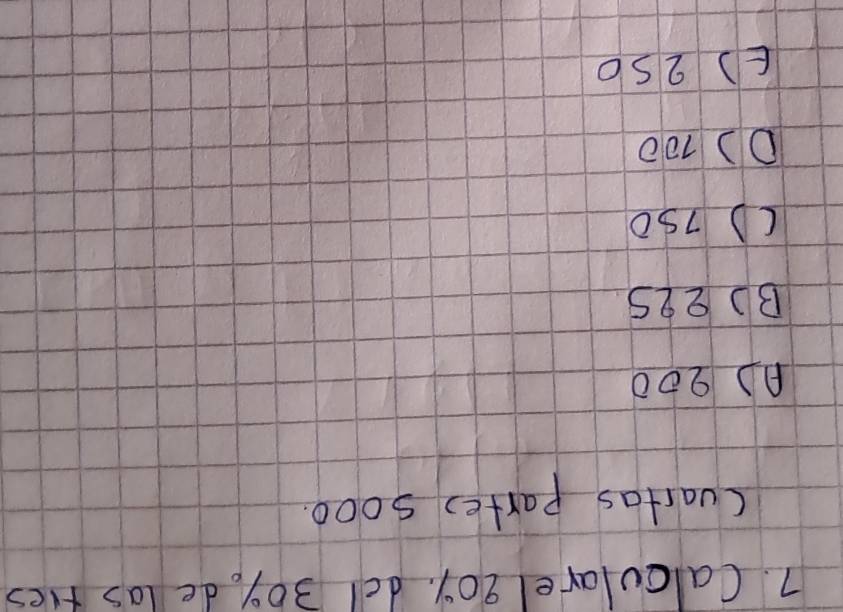 1. Calcular el 20% del 30% de las tres
Cuartas partes 5000.
A) 200
B) 225
C) 150
D) 100
E) 250